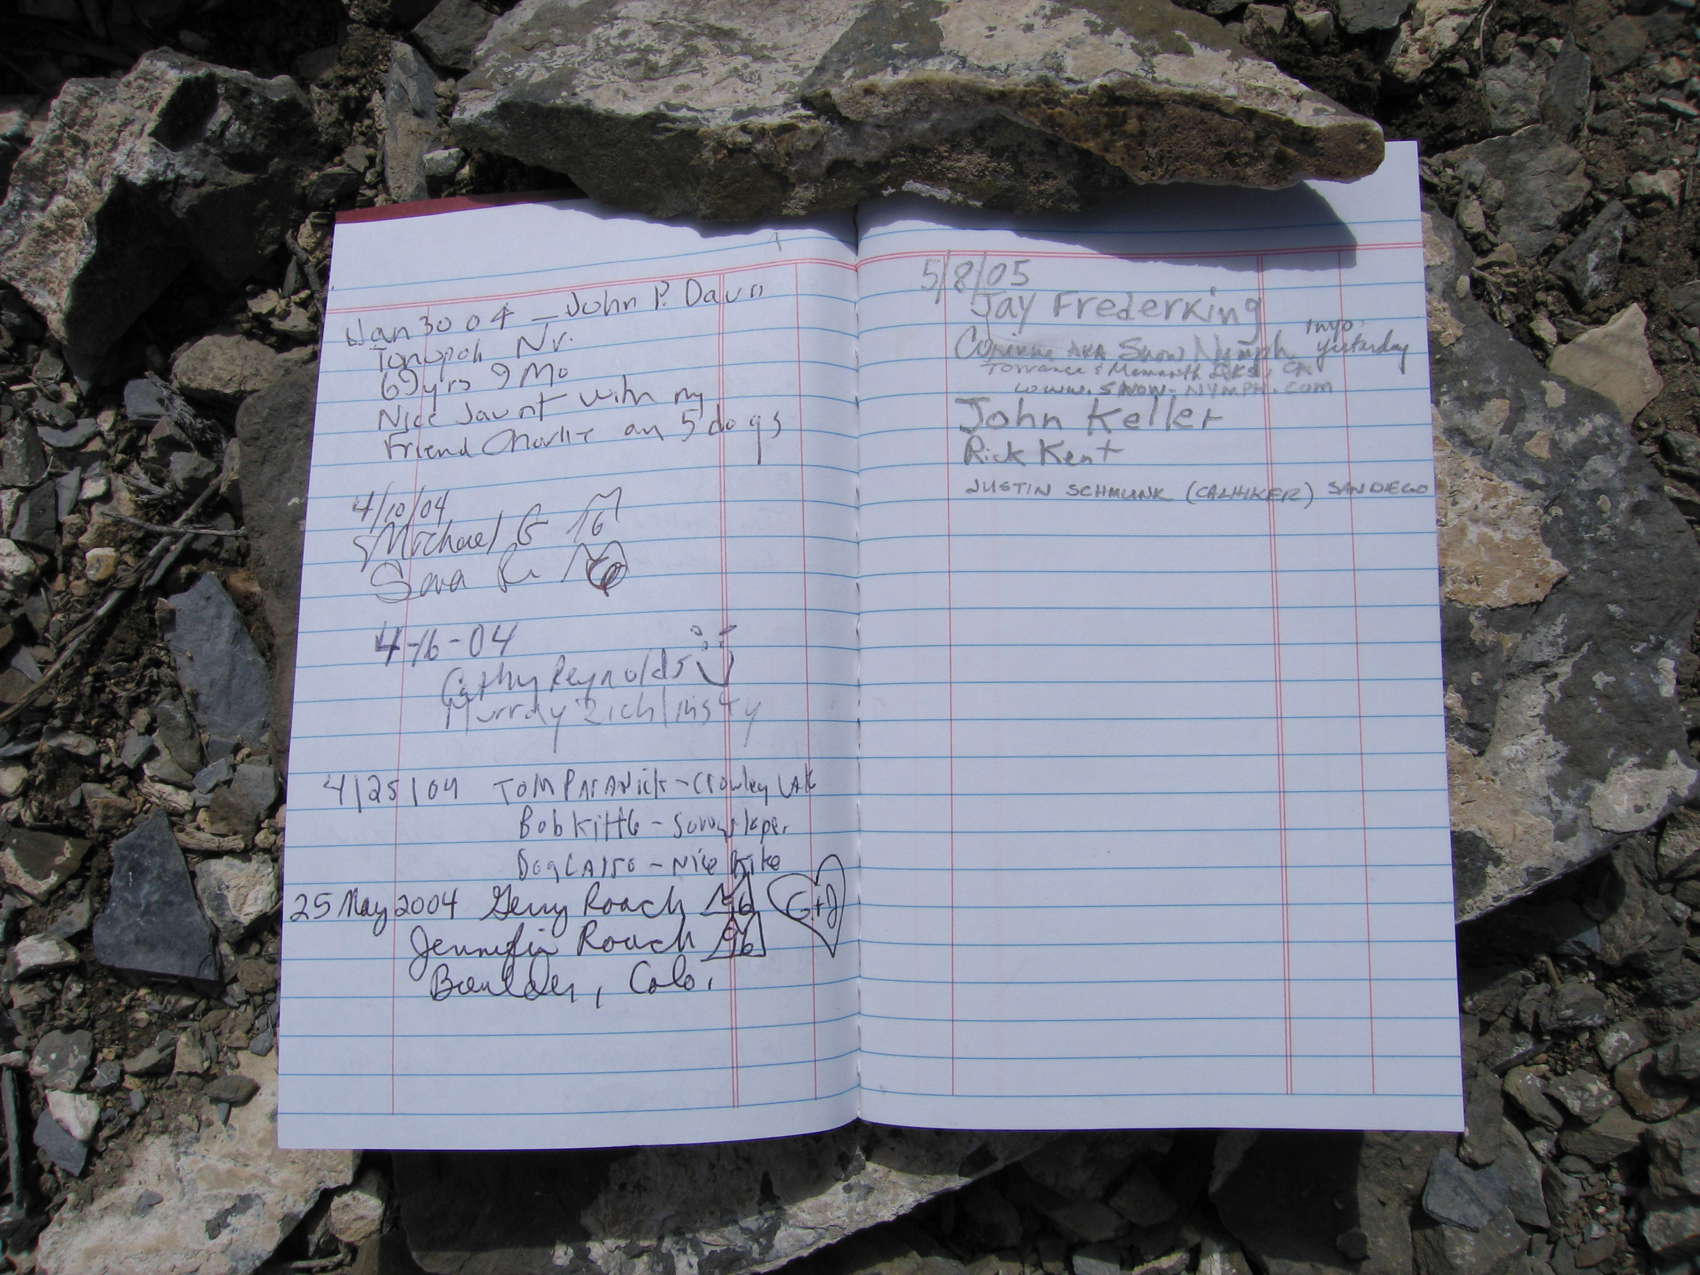 Jan 30 04 - John P. Davn
Tonopah Nv.
69 yrs 9 Mo
Nice Jaunt with my
Friend Charlie an 5 dogs
4/10/04
Michael G
Sara
4-16-04
Cathy Reynolds
Murray Zichlinsky
4/25/04 Tom - Crowley LAK
Bob -
Dog - Nice Hike
25 May 2004 Gerry Roach
G+J
Jennifer Roach
Boulder, Colo.
5/8/05
Jay Frederking
Corinne AKA Snow Nymph yesterday
Torrance & Mammoth Lks, CA
www.snow-nymph.com
John Keller
Rick Kent
JUSTIN SCHMUNK (CALHIKER) SAN DIEGO